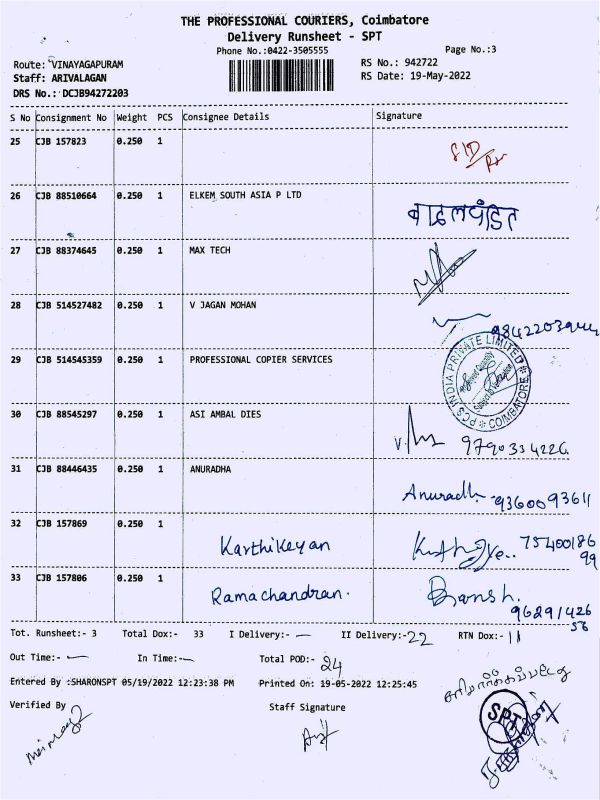 THE PROFESSIONAL COURIERS, Coimbatore
Delivery Runsheet - SPT
Phone No.:0422-3505555
Page No.:3
Route: VINAYAGAPURAM
RS No.: 942722
Staff: ARIVALAGAN
RS Date: 19-May-2022
DRS No.: DCJB94272203
S No Consignment No Weight PCS Consignee Details Signature
25 CJB 157823 0.250 1
26 CJB 88510664 0.250 1 ELKEM SOUTH ASIA P LTD
27 CJB 88374645 0.250 1 MAX TECH
28 CJB 514527482 0.250 1 V JAGAN MOHAN
29 CJB 514545359 0.250 1 PROFESSIONAL COPIER SERVICES
PCS INDIA PRIVATE LIMITED
COIMBATORE
30 CJB 88545297 0.250 1 ASI AMBAL DIES
9790334226
31 CJB 88446435 0.250 1 ANURADHA
Anuradh 9360093611
32 CJB 157869 0.250 1 Karthikeyan
75400186
99
33 CJB 157806 0.250 1 Ramachandran.
96291426
56
Tot. Runsheet:- 3 Total Dox:- 33 I Delivery:- — II Delivery:- 22 RTN Dox:- 11
Out Time:- — In Time:- — Total POD:- 24
Entered By :SHARONSPT 05/19/2022 12:23:38 PM Printed On: 19-05-2022 12:25:45
Verified By Staff Signature
SPT